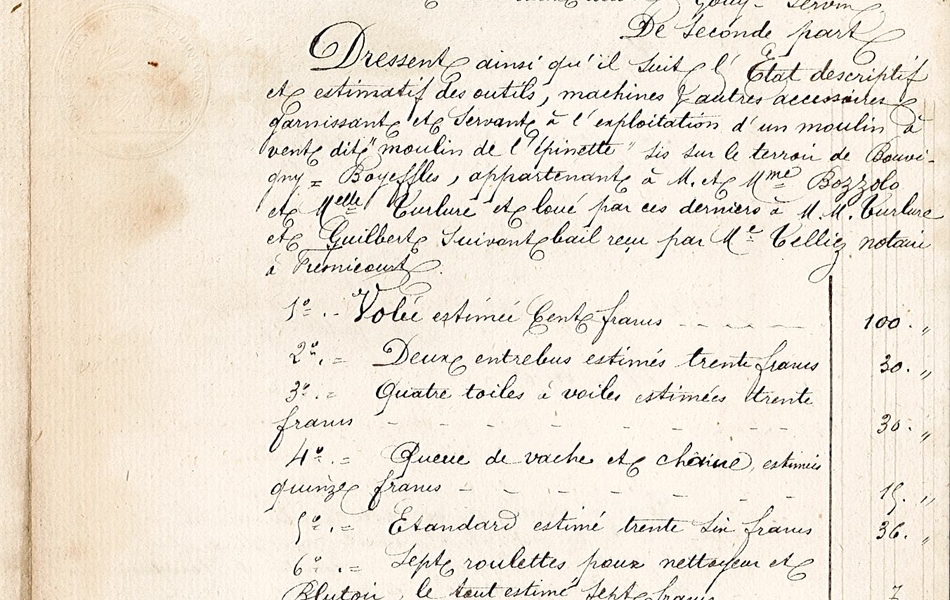 Gouy-Servins
De Seconde part
Dressent ainsi qu'il suit l'Etat descriptif
et estimatif des outils, machines & autres accessoires
garnissant et servant à l'exploitation d'un moulin à
vent dit "moulin de l'Epinette" sis sur le terroir de Bouvi-
gny = Boyeffles, appartenant à M. et Mme Bozzolo
et Melle Turlure et loué par ces derniers à M.M. Turlure
et Guilbert suivant bail reçu par Me Telliez notaire
à Fremicourt.
1º. - Volée estimée Cent francs 100. "
2º. = Deux entrebus estimés trente francs 30. "
3º. = Quatre toiles à voiles estimées trente
francs 30. "
4º. = Queue de vache et chaine, estimés
quinze francs 15. "
5º. = Etandard estimé trente six francs 36. "
6º. = Sept roulettes pour nettoyeur et
Blutoir, le tout estimé sept francs 7